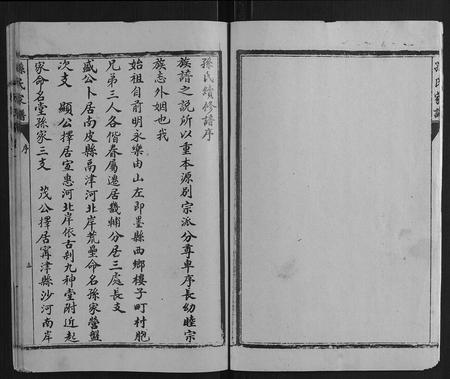 孫氏續修譜序
族譜之説所以重本源别宗派分尊卑序長幼睦宗
族志外姻也我
始祖自前明永樂由山左即墨縣西鄉樓子町村胞
兄弟三人各偕眷屬遷居畿輔分居三處長支
盛公卜居南皮縣鬲津河北岸荒壘命名孫家營盤
次支　顯公擇居宣惠河北岸依古刹九神堂附近起
家命名堂孫家三支　茂公擇居寗津縣沙河南岸
孫氏家譜
序
孫氏家譜